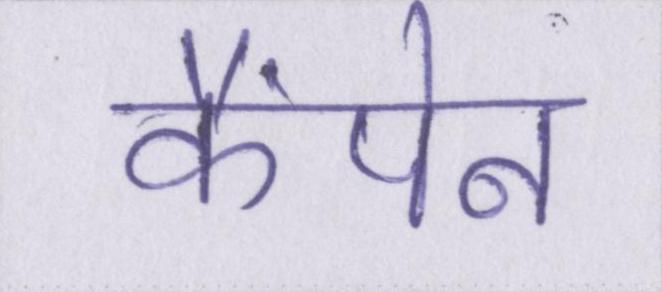 कैंपेन